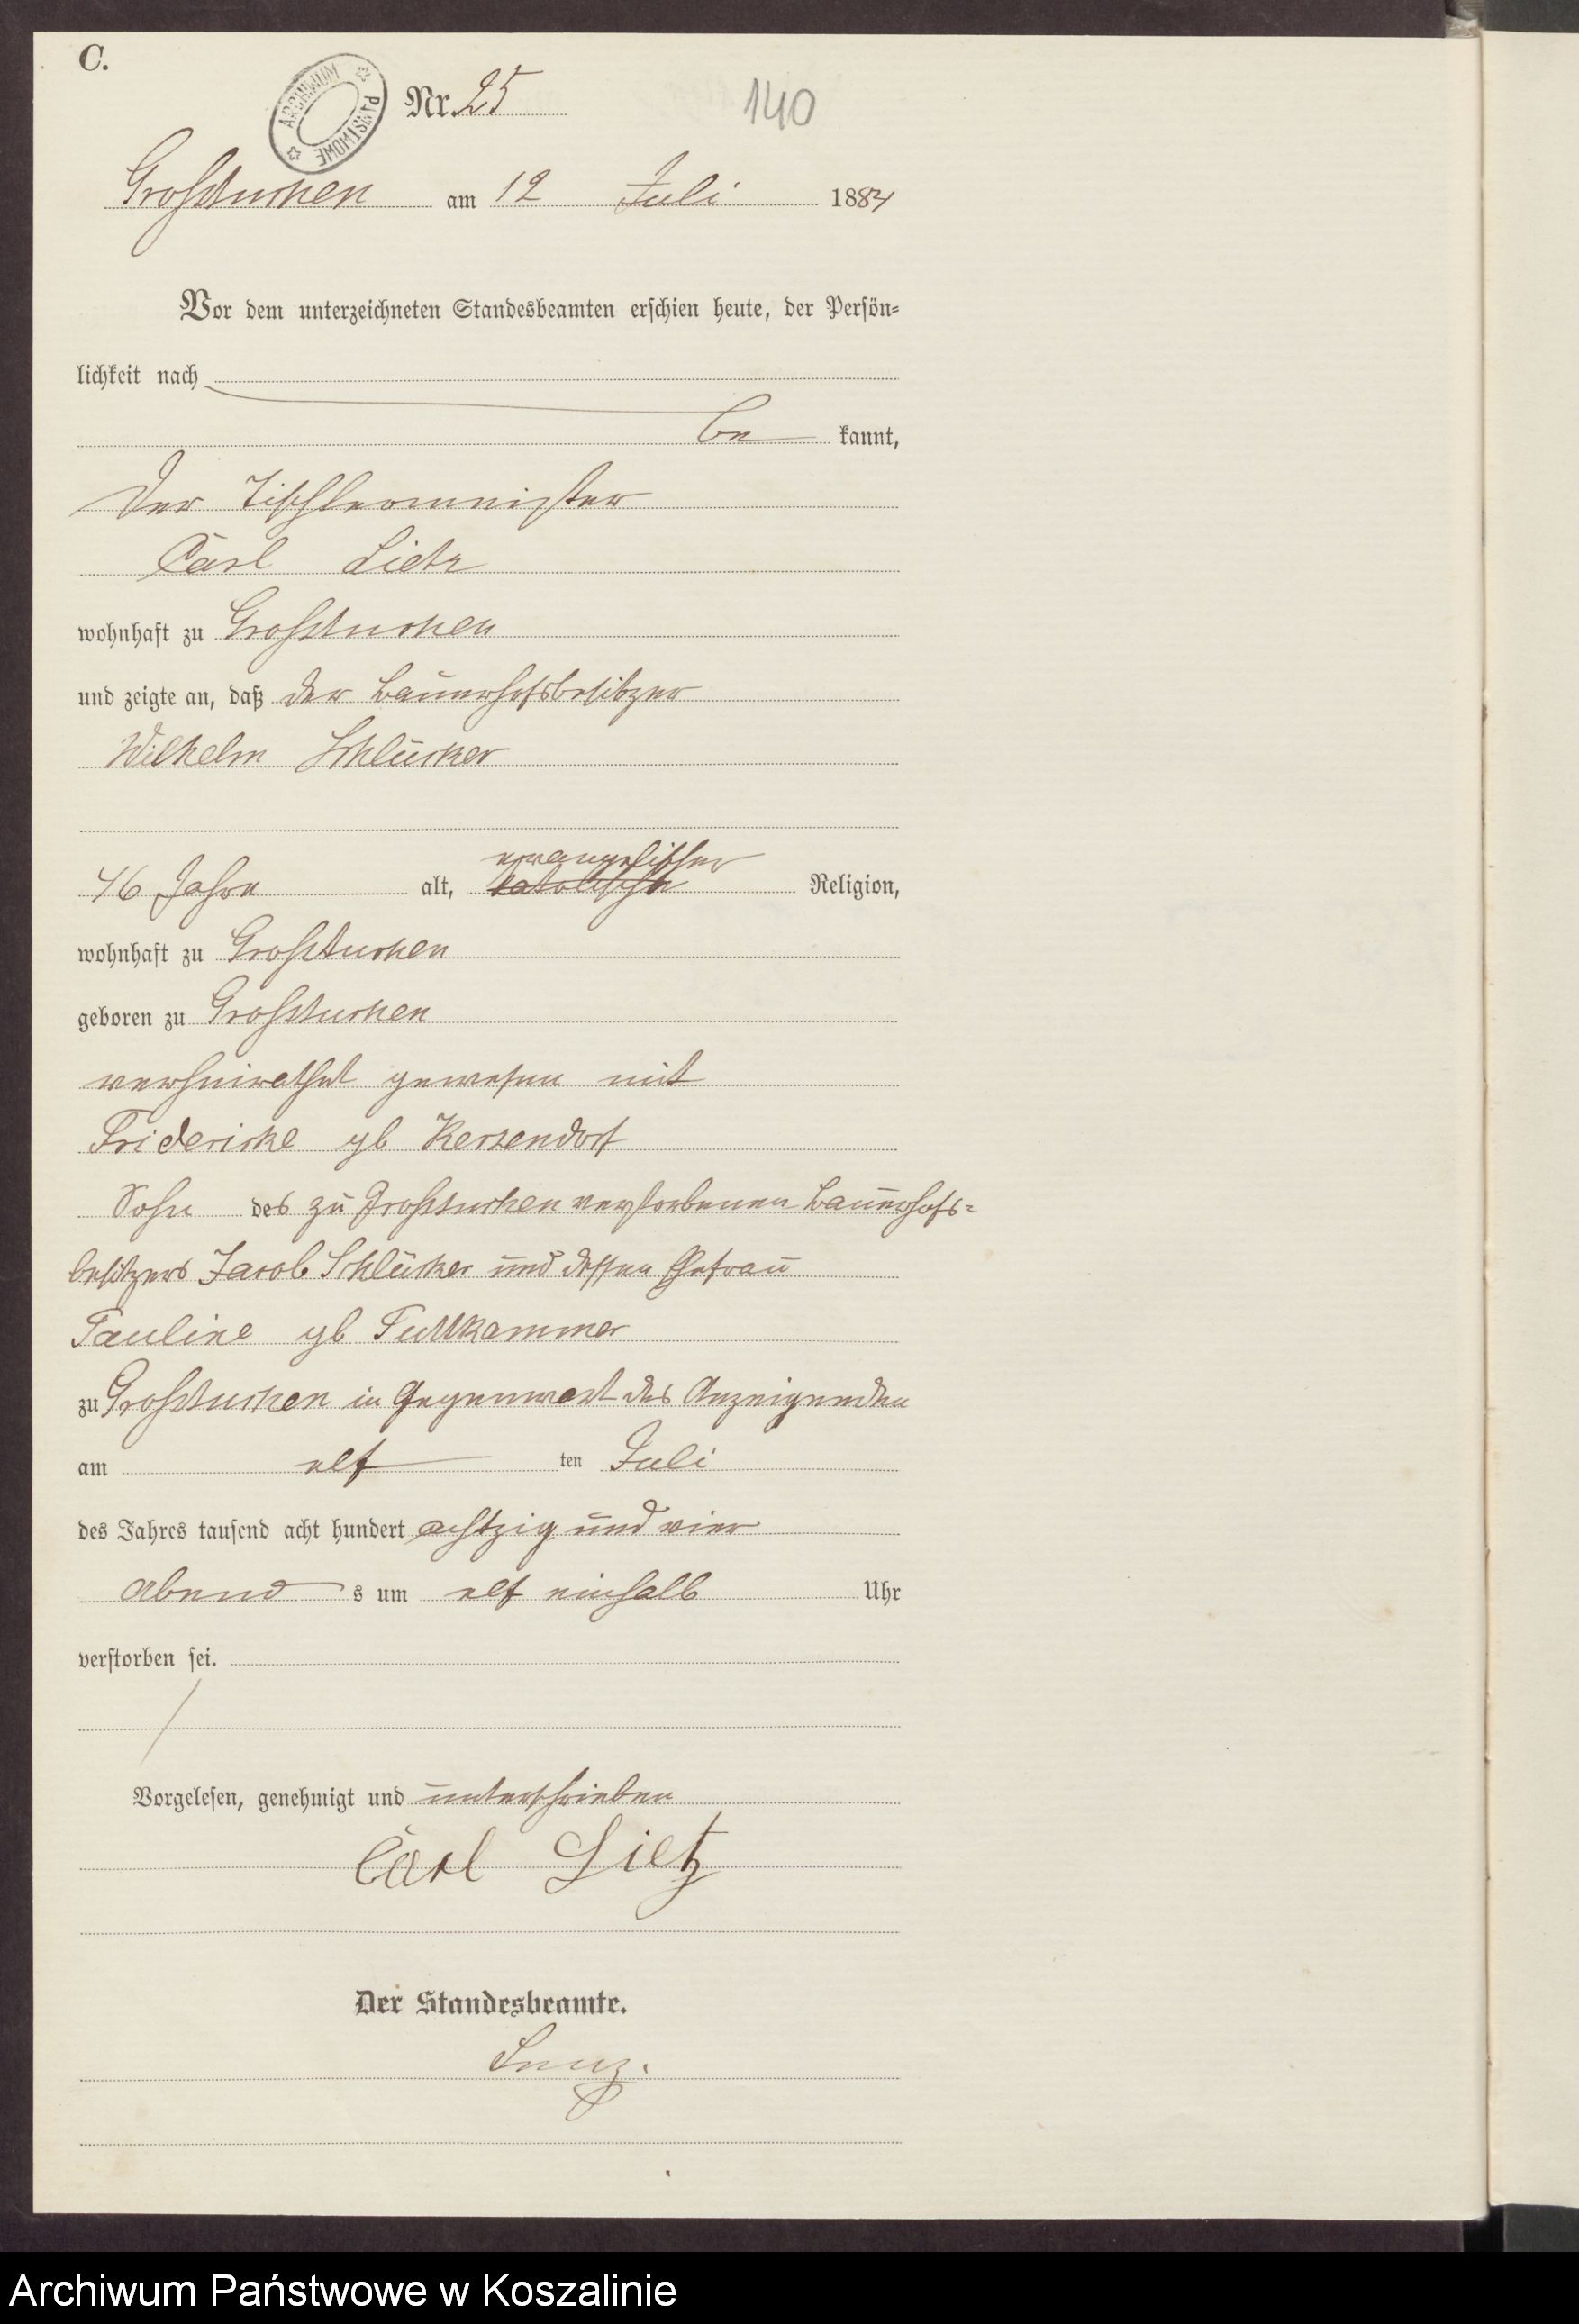 C.
ARCHIWUM PAŃSTWOWE
Nr. 25
140
Großtuchen am 12 Juli 1884
Vor dem unterzeichneten Standesbeamten erschien heute, der Persön=
lichkeit nach
be kannt,
Der Tischlermeister
Carl Lietz
wohnhaft zu Großtuchen
und zeigte an, daß der Bauerhofsbesitzer
Wilhelm Schlücker
evangelischer
46 Jahre alt, katolische Religion,
wohnhaft zu Großtuchen
geboren zu Großtuchen
verheirathet gewesen mit
Fridericke gb
Sohn des zu Großtuchen verstorbenen Bauerhofs=
besitzers Jacob Schlücker und dessen Ehefrau
Pauline gb Puttkammer
zu Großtuchen in Gegenwart des Anzeigenden
am elf ten Juli
des Jahres tausend acht hundert achtzig und vier
Abend s um elf einhalb Uhr
verstorben sei.
Vorgelesen, genehmigt und unterschrieben
Carl Lietz
Der Standesbeamte.
Archiwum Państwowe w Koszalinie